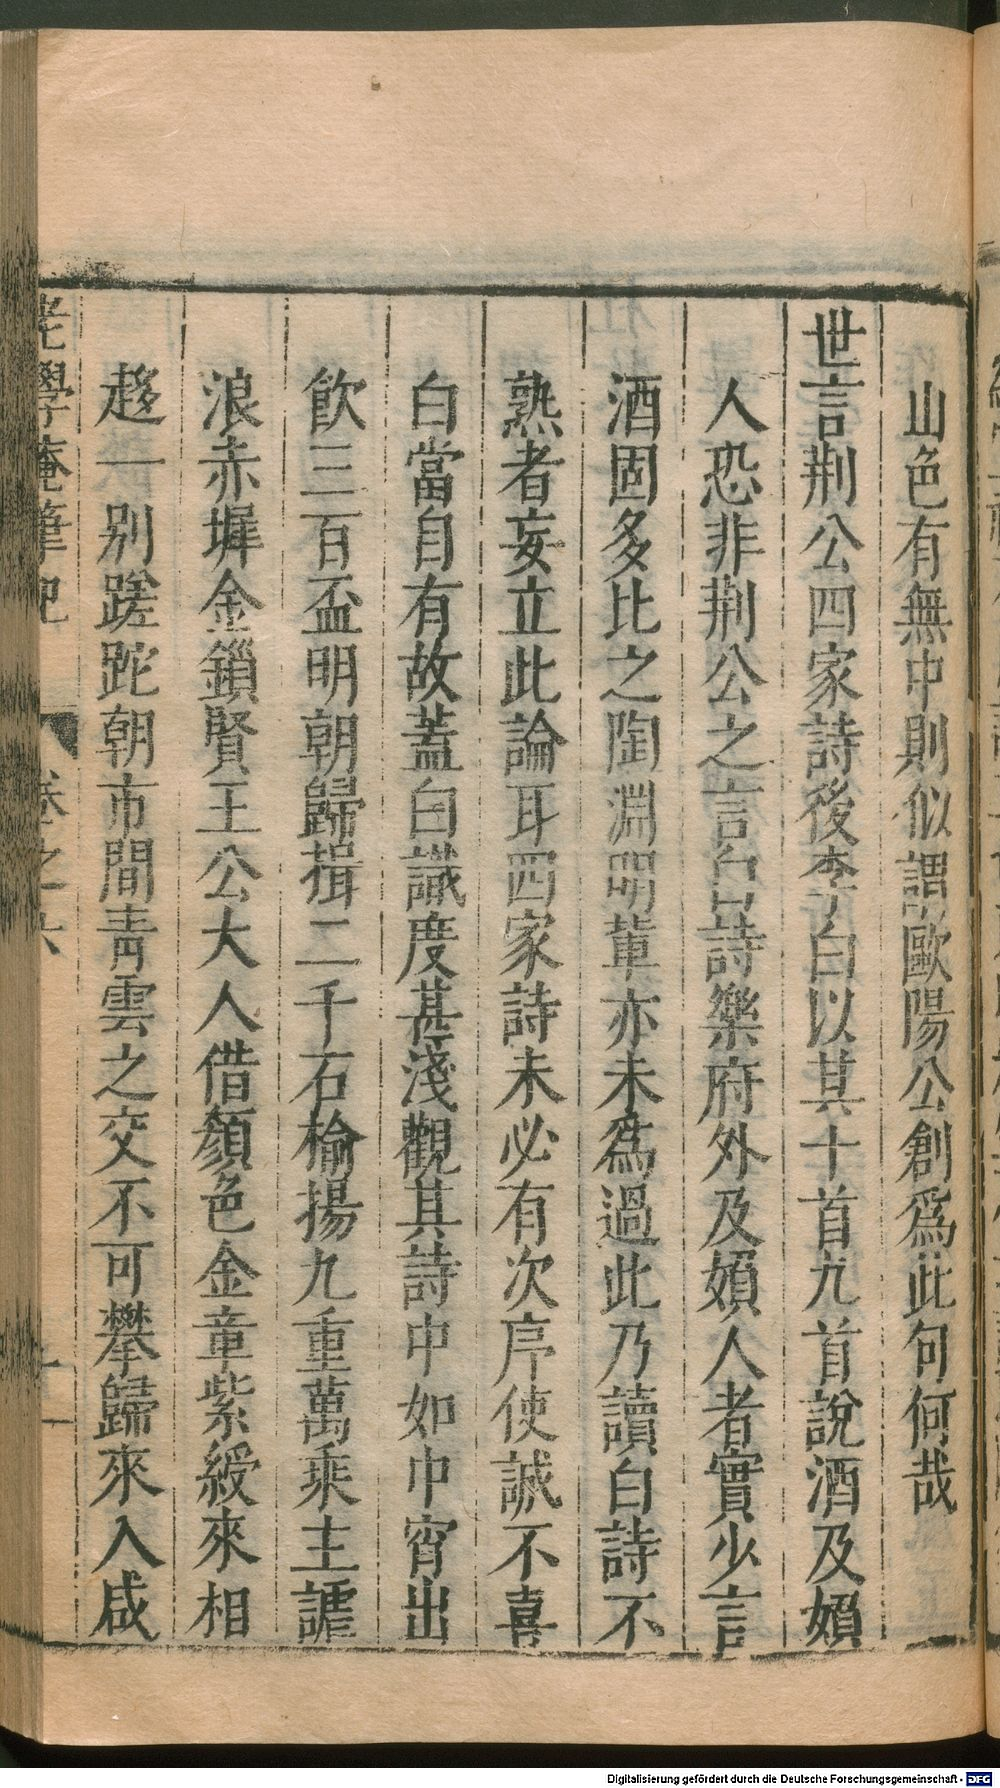 山色有無中則似謂歐陽公創爲此句何哉
世言荆公四家詩後李白以其十首九首說酒及婦
人恐非荆公之言白詩樂府外及婦人者實少言
酒固多比之陶淵明輩亦未爲過此乃讀白詩不
熟者妄立此論耳四家詩未必有次序使誠不喜
白當自有故蓋白識度甚淺觀其詩中如中宵出
飲三百盃明朝歸揖二千石揄揚九重萬乘主謔
浪赤墀金鎖賢王公大人借顏色金章紫綬來相
趍一别蹉跎朝市間青雲之交不可攀歸來入咸
老學庵筆記
卷之六
十一
Digitalisierung gefördert durch die Deutsche Forschungsgemeinschaft - DFG